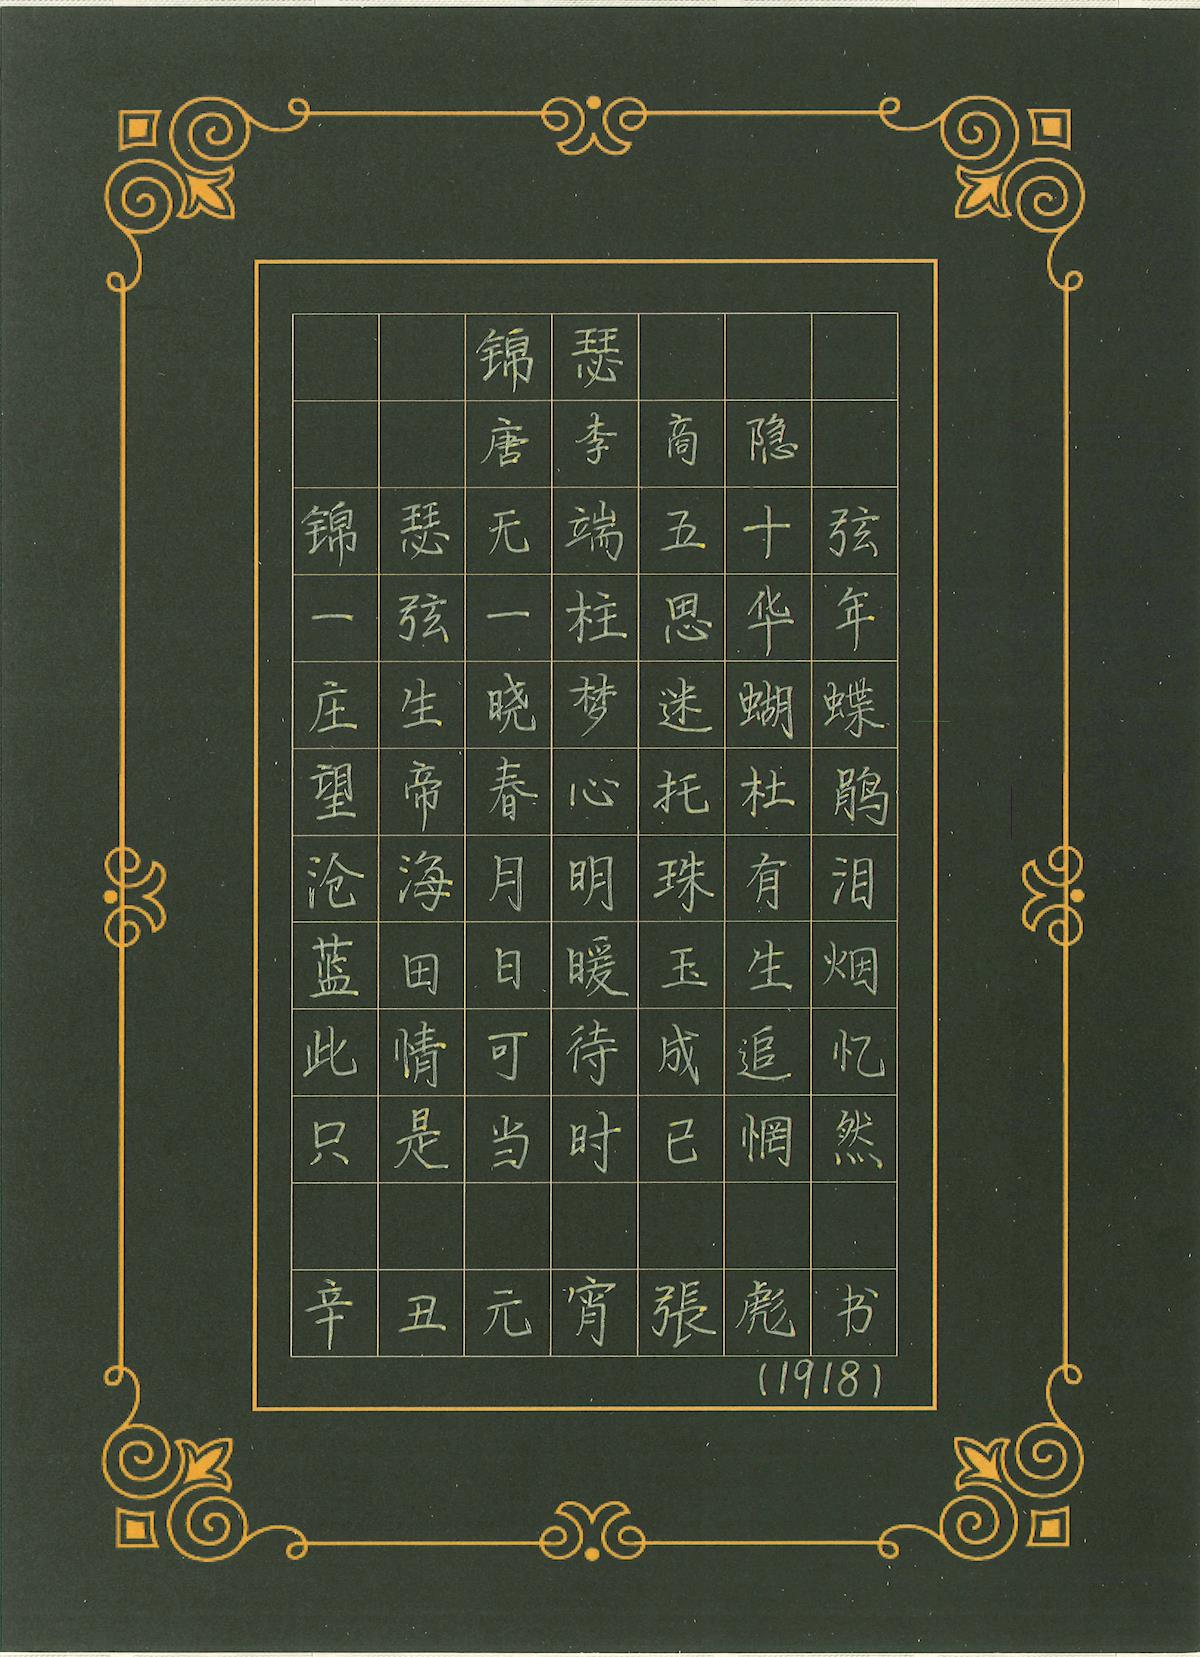 锦瑟
唐李商隐
锦瑟无端五十弦
一弦一柱思华年
庄生晓梦迷蝴蝶
望帝春心托杜鹃
沧海月明珠有泪
蓝田日暖玉生烟
此情可待成追忆
只是当时已惘然
辛丑元宵張彪书
(1918)